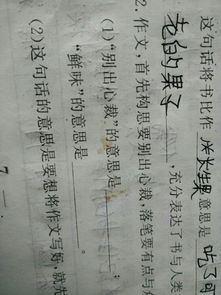 这句话将书比作 长生果 意思是 吃了可
老的果子 ，充分表达了书与人类
2. 作文，首先构思要别出心裁，落笔要有点与
(1)“别出心裁”的意思是 ；
“鲜味”的意思是
(2)这句话的意思是要想将作文写好，就先
7